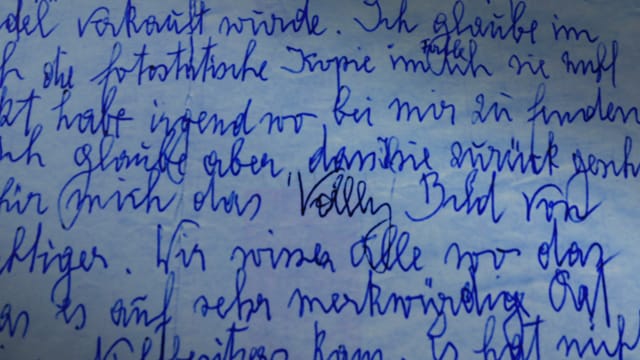 del verkauft wurde. Ich glaube im
die fotostatische Kopie falls ich sie nicht
habe irgendwo bei mir zu finden
ich glaube aber, dass sie zurück gesch
für mich das Bild von
chtiger. Wir wissen alle wo das
as es auf sehr merkwürdige Art
kam. Es hat nich